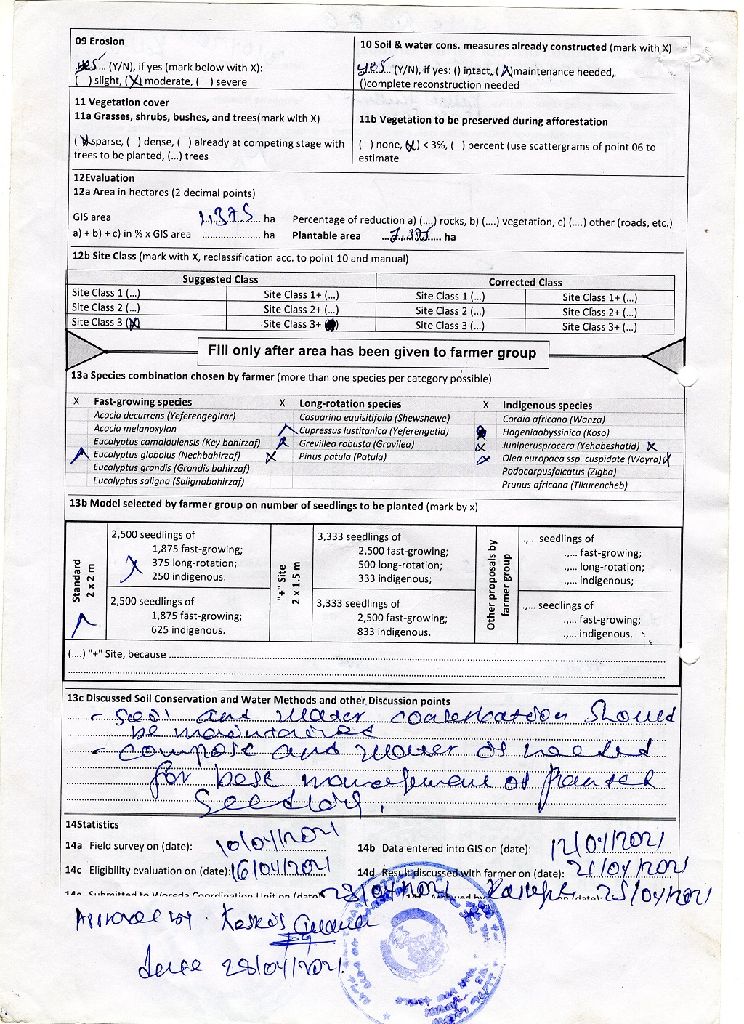 09 Erosion
yes... (Y/N), if yes (mark below with X):
( ) slight, (X) moderate, ( ) severe
10 Soil & water cons. measures already constructed (mark with X)
yes... (Y/N), if yes: () intact, (X)maintenance needed,
()complete reconstruction needed
11 Vegetation cover
11a Grasses, shrubs, bushes, and trees(mark with X)
(X)sparse, ( ) dense, ( ) already at competing stage with
trees to be planted, (...) trees
11b Vegetation to be preserved during afforestation
( ) none, (X) < 3%, ( ) percent (use scattergrams of point 06 to
estimate
12Evaluation
12a Area in hectares (2 decimal points)
GIS area 1.375 ha Percentage of reduction a) (....) rocks, b) (....) vegetation, c) (....) other (roads, etc.)
a) + b) + c) in % x GIS area .................... ha Plantable area ha
12b Site Class (mark with X, reclassification acc. to point 10 and manual)
Suggested Class Corrected Class
Site Class 1 (...) Site Class 1+ (...) Site Class 1 (...) Site Class 1+ (...)
Site Class 2 (...) Site Class 2+ (...) Site Class 2 (...) Site Class 2+ (...)
Site Class 3 (X) Site Class 3+ Site Class 3 (...) Site Class 3+ (...)
Fill only after area has been given to farmer group
13a Species combination chosen by farmer (more than one species per category possible)
X Fast-growing species X Long-rotation species X Indigenous species
Acacia decurrens (Yeferengegirar) Casuarina equisitifolia (Shewshewe) Cordia africana (Wanza)
Acacia melanoxylon Cupressus lustitanica (Yeferengetid) Hageniaabyssinica (Koso)
Eucalyptus camaldulensis (Key bahirzaf) Grevillea robusta (Gravilea) Juniperusprocera (Yehabeshatid) X
Eucalyptus globolus (Nechbahirzaf) X Pinus patula (Patula) Olea europaea ssp. cuspidate (Wayra)
Eucalyptus grandis (Grandis bahirzaf) Podocarpusfalcatus (Zigba)
Eucalyptus saligna (Salignabahirzaf) Prunus africana (Tikurencheb)
13b Model selected by farmer group on number of seedlings to be planted (mark by x)
Standard
2 x 2 m
2,500 seedlings of
1,875 fast-growing;
X 375 long-rotation;
250 indigenous.
2,500 seedlings of
1,875 fast-growing;
625 indigenous.
"+" Site
2 x 1.5 m
3,333 seedlings of
2,500 fast-growing;
500 long-rotation;
333 indigenous;
3,333 seedlings of
2,500 fast-growing;
833 indigenous.
Other proposals by
farmer group
.... seedlings of
..... fast-growing;
..... long-rotation;
..... indigenous;
.... seedlings of
..... fast-growing;
..... indigenous.
(....) "+" Site, because
13c Discussed Soil Conservation and Water Methods and other Discussion points
- Soil and water conservation should
be maintained
- compost and water is needed
for best management of planted
Seedling.
14Statistics
14a Field survey on (date): 10/04/2021
14b Data entered into GIS on (date): 12/04/2021
14c Eligibility evaluation on (date): 16/04/2021
14d Result discussed with farmer on (date): 21/04/2021
14e Submitted to Woreda Coordination Unit on (date) 23/04/2021 25/04/2021
Approved by.
date 28/04/2021